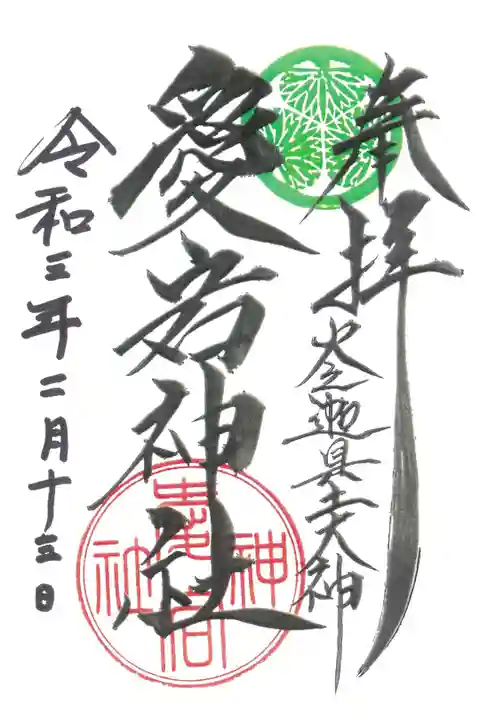 奉拝
火産迦具土大神
愛宕神社
愛宕神社
令和三年二月十三日